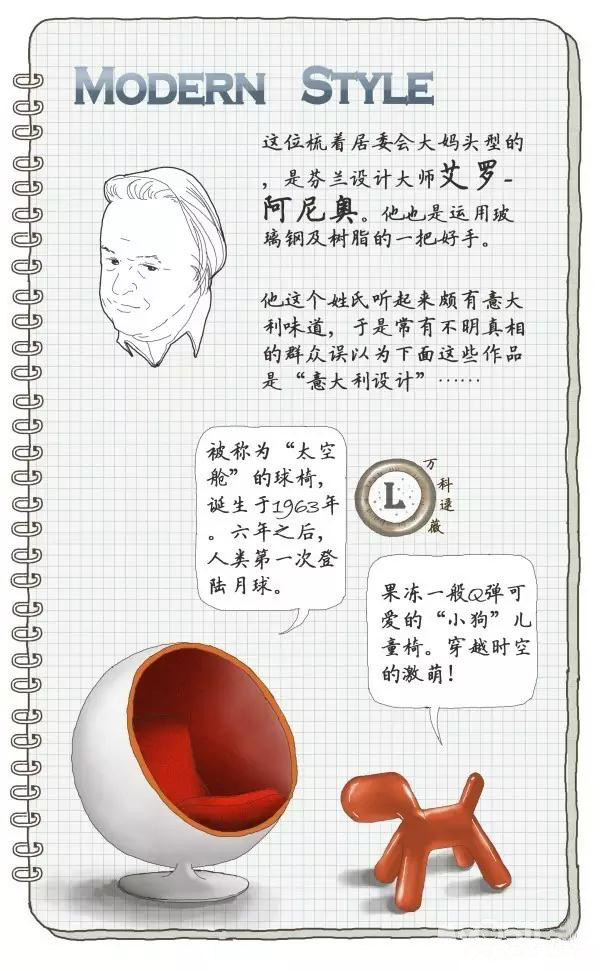 MODERN STYLE
这位梳着居委会大妈头型的
，是芬兰设计大师艾罗-
阿尼奥。他也是运用玻
璃钢及树脂的一把好手。
他这个姓氏听起来颇有意大
利味道，于是常有不明真相
的群众误以为下面这些作品
是“意大利设计”……
被称为“太空
舱”的球椅，
诞生于1963年
。六年之后，
人类第一次登
陆月球。
L
万
科
逯
薇
果冻一般Q弹可
爱的“小狗”儿
童椅。穿越时空
的激萌！